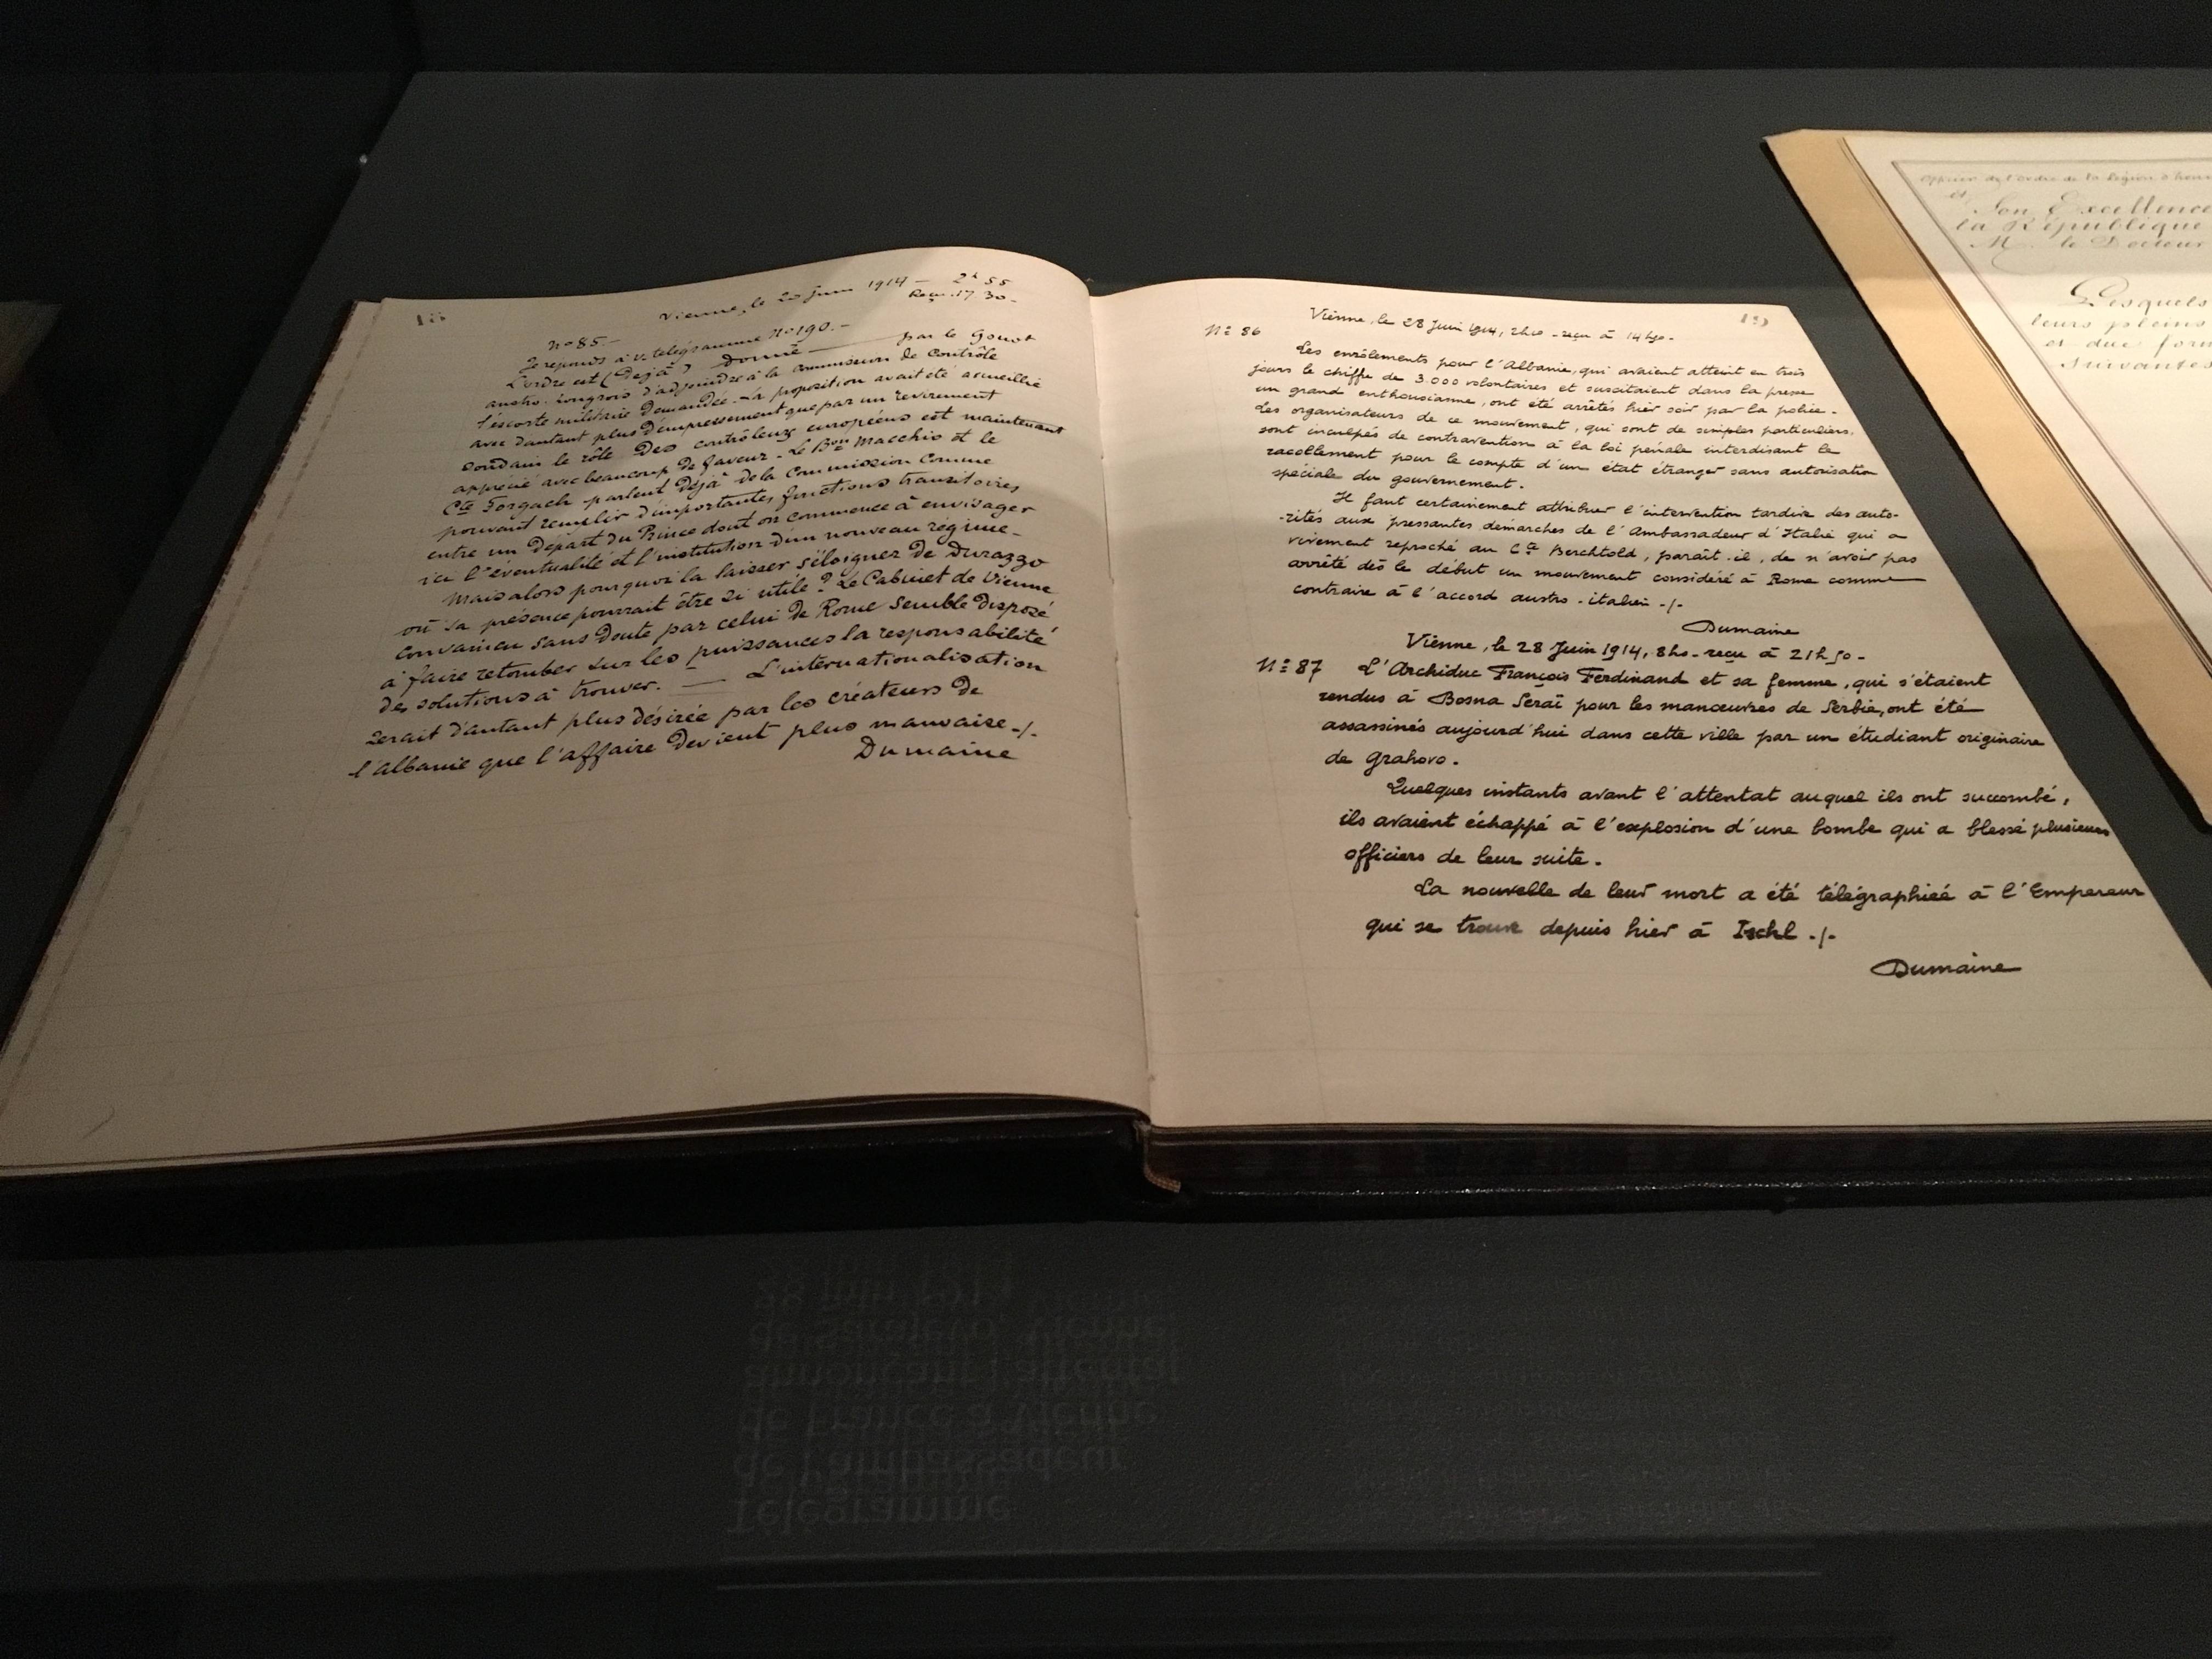 18
Vienne, le 20 Juin 1914 — 2h 55
Reçu. 17 30 -
N° 85. -
Je réponds à v. télégramme N° 190. -
L'ordre est (Déjà) Donné — par le Gouvt
austro. hongrois d'adjoindre à la commission de Contrôle
l'escorte militaire demandée. - La proposition avait été accueillie
avec d'autant plus d'empressement que par un revirement
soudain le rôle Des contrôleurs européens est maintenant
apprécié avec beaucoup de faveur - Le Bon Macchio et le
Cte Forgach parlent Déjà de la Commission comme
pouvant remplir d'importantes fonctions transitoires
entre un Départ du Prince dont on commence à envisager
ici l'éventualité et l'institution d'un nouveau régime -
Mais alors pourquoi la laisser s'éloigner de Durazzo
où sa présence pourrait être si utile ? Le Cabinet de Vienne
convaincu sans Doute par celui de Rome semble Disposé
à faire retomber sur les puissances la responsabilité
des solutions à trouver. — L'internationalisation
serait d'autant plus désirée par les créateurs de
l'Albanie que l'affaire Devient plus mauvaise -/-
Dumaine
19
Vienne, le 28 Juin 1914, 2h10 - reçu à 14h50 -
N° 86
Les enrôlements pour l'Albanie, qui avaient atteint en trois
jours le chiffre de 3.000 volontaires et suscitaient dans la presse
un grand enthousiasme, ont été arrêtés hier soir par la police -
Les organisateurs de ce mouvement, qui sont de simples particuliers,
sont inculpés de contravention à la loi pénale interdisant le
racollement pour le compte d'un état étranger sans autorisation
spéciale du gouvernement.
Il faut certainement attribuer l'intervention tardive des auto-
-rités aux pressantes démarches de l'Ambassadeur d'Italie qui a
vivement reproché au Cte Berchtold, paraît-il, de n'avoir pas
arrêté dès le début un mouvement considéré à Rome comme
contraire à l'accord austro-italien -/-
Dumaine
Vienne, le 28 Juin 1914, 8ho - reçu à 21h50 -
N° 87 L'Archiduc François Ferdinand et sa femme, qui s'étaient
rendus à Bosna Séraï pour les manœuvres de Serbie, ont été
assassinés aujourd'hui dans cette ville par un étudiant originaire
de Grahovo.
Quelques instants avant l'attentat auquel ils ont succombé,
ils avaient échappé à l'explosion d'une bombe qui a blessé plusieurs
officiers de leur suite.
La nouvelle de leur mort a été télégraphiée à l'Empereur
qui se trouve depuis hier à Ischl -/-
Dumaine
Officier de l'ordre de la Légion d'hon
et
Son Excellence
la République
M. le Docteur
Lesquels
leurs pleins
et due form
suivantes
Télégramme
de l'ambassadeur
de France à Vienne
annonçant l'attentat
de Sarajevo, Vienne,
28 juin 1914